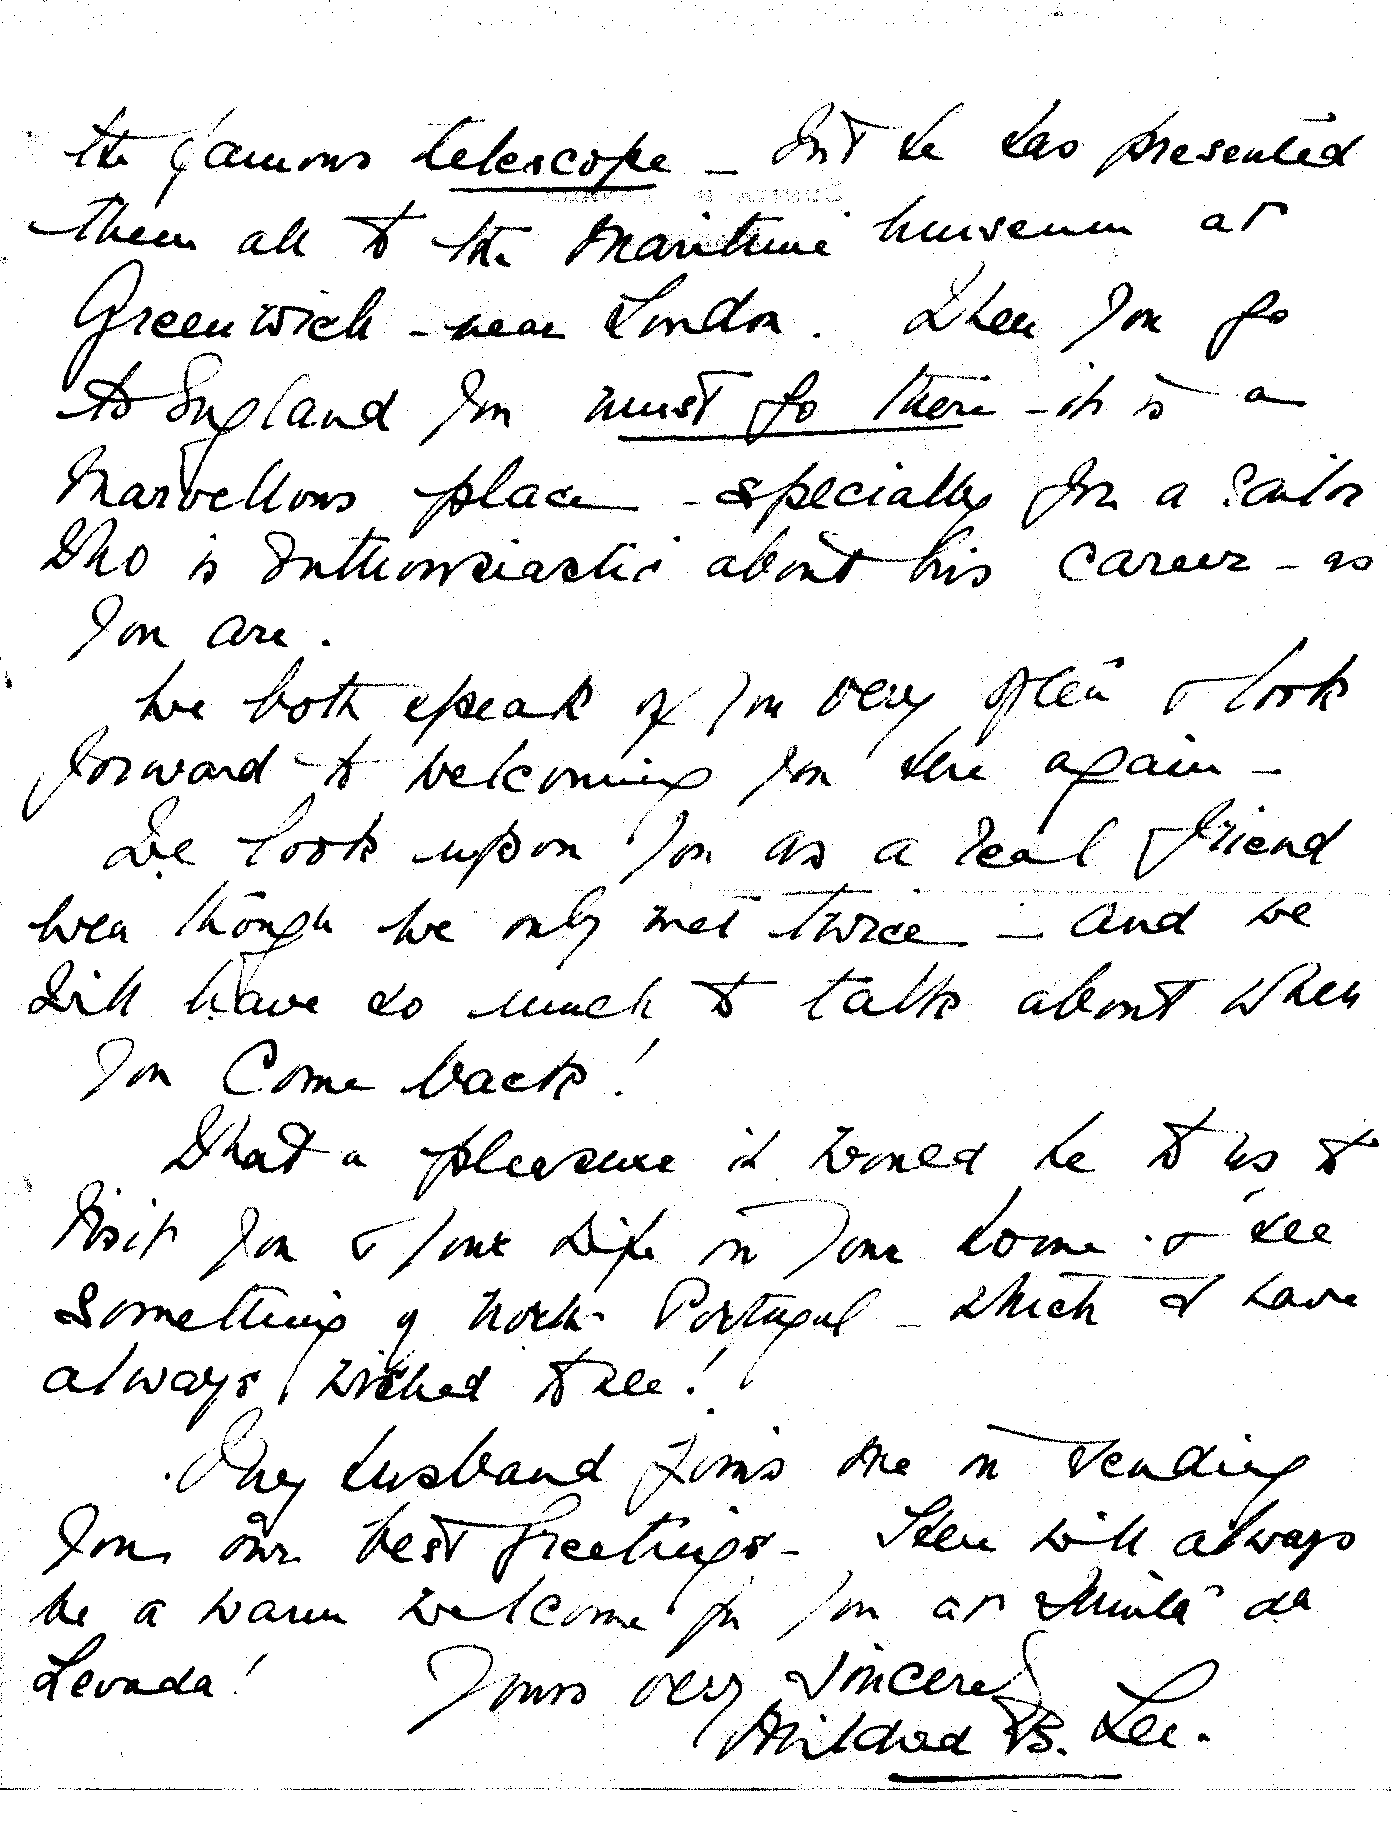 the famous telescope - but he has presented
them all to the Maritime Museum at
Greenwich - near London. When you go
to England you must go there - it is a
Marvellous place - especially for a sailor
Who is Enthousiastic about his career - as
you are.
We both speak of you very often & look
forward to welcoming you here again -
We look upon you as a real friend
even though we only met twice - and we
will have so much to talk about when
you come back!
What a pleasure it would be to us to
visit you & your wife in your home & see
something of North Portugal - which I have
always wished to see!
My husband joins me in sending
you our best greetings - There will always
be a warm welcome for you at Quinta da
Levada! Yours very sincerely
Mildred B. Lee.